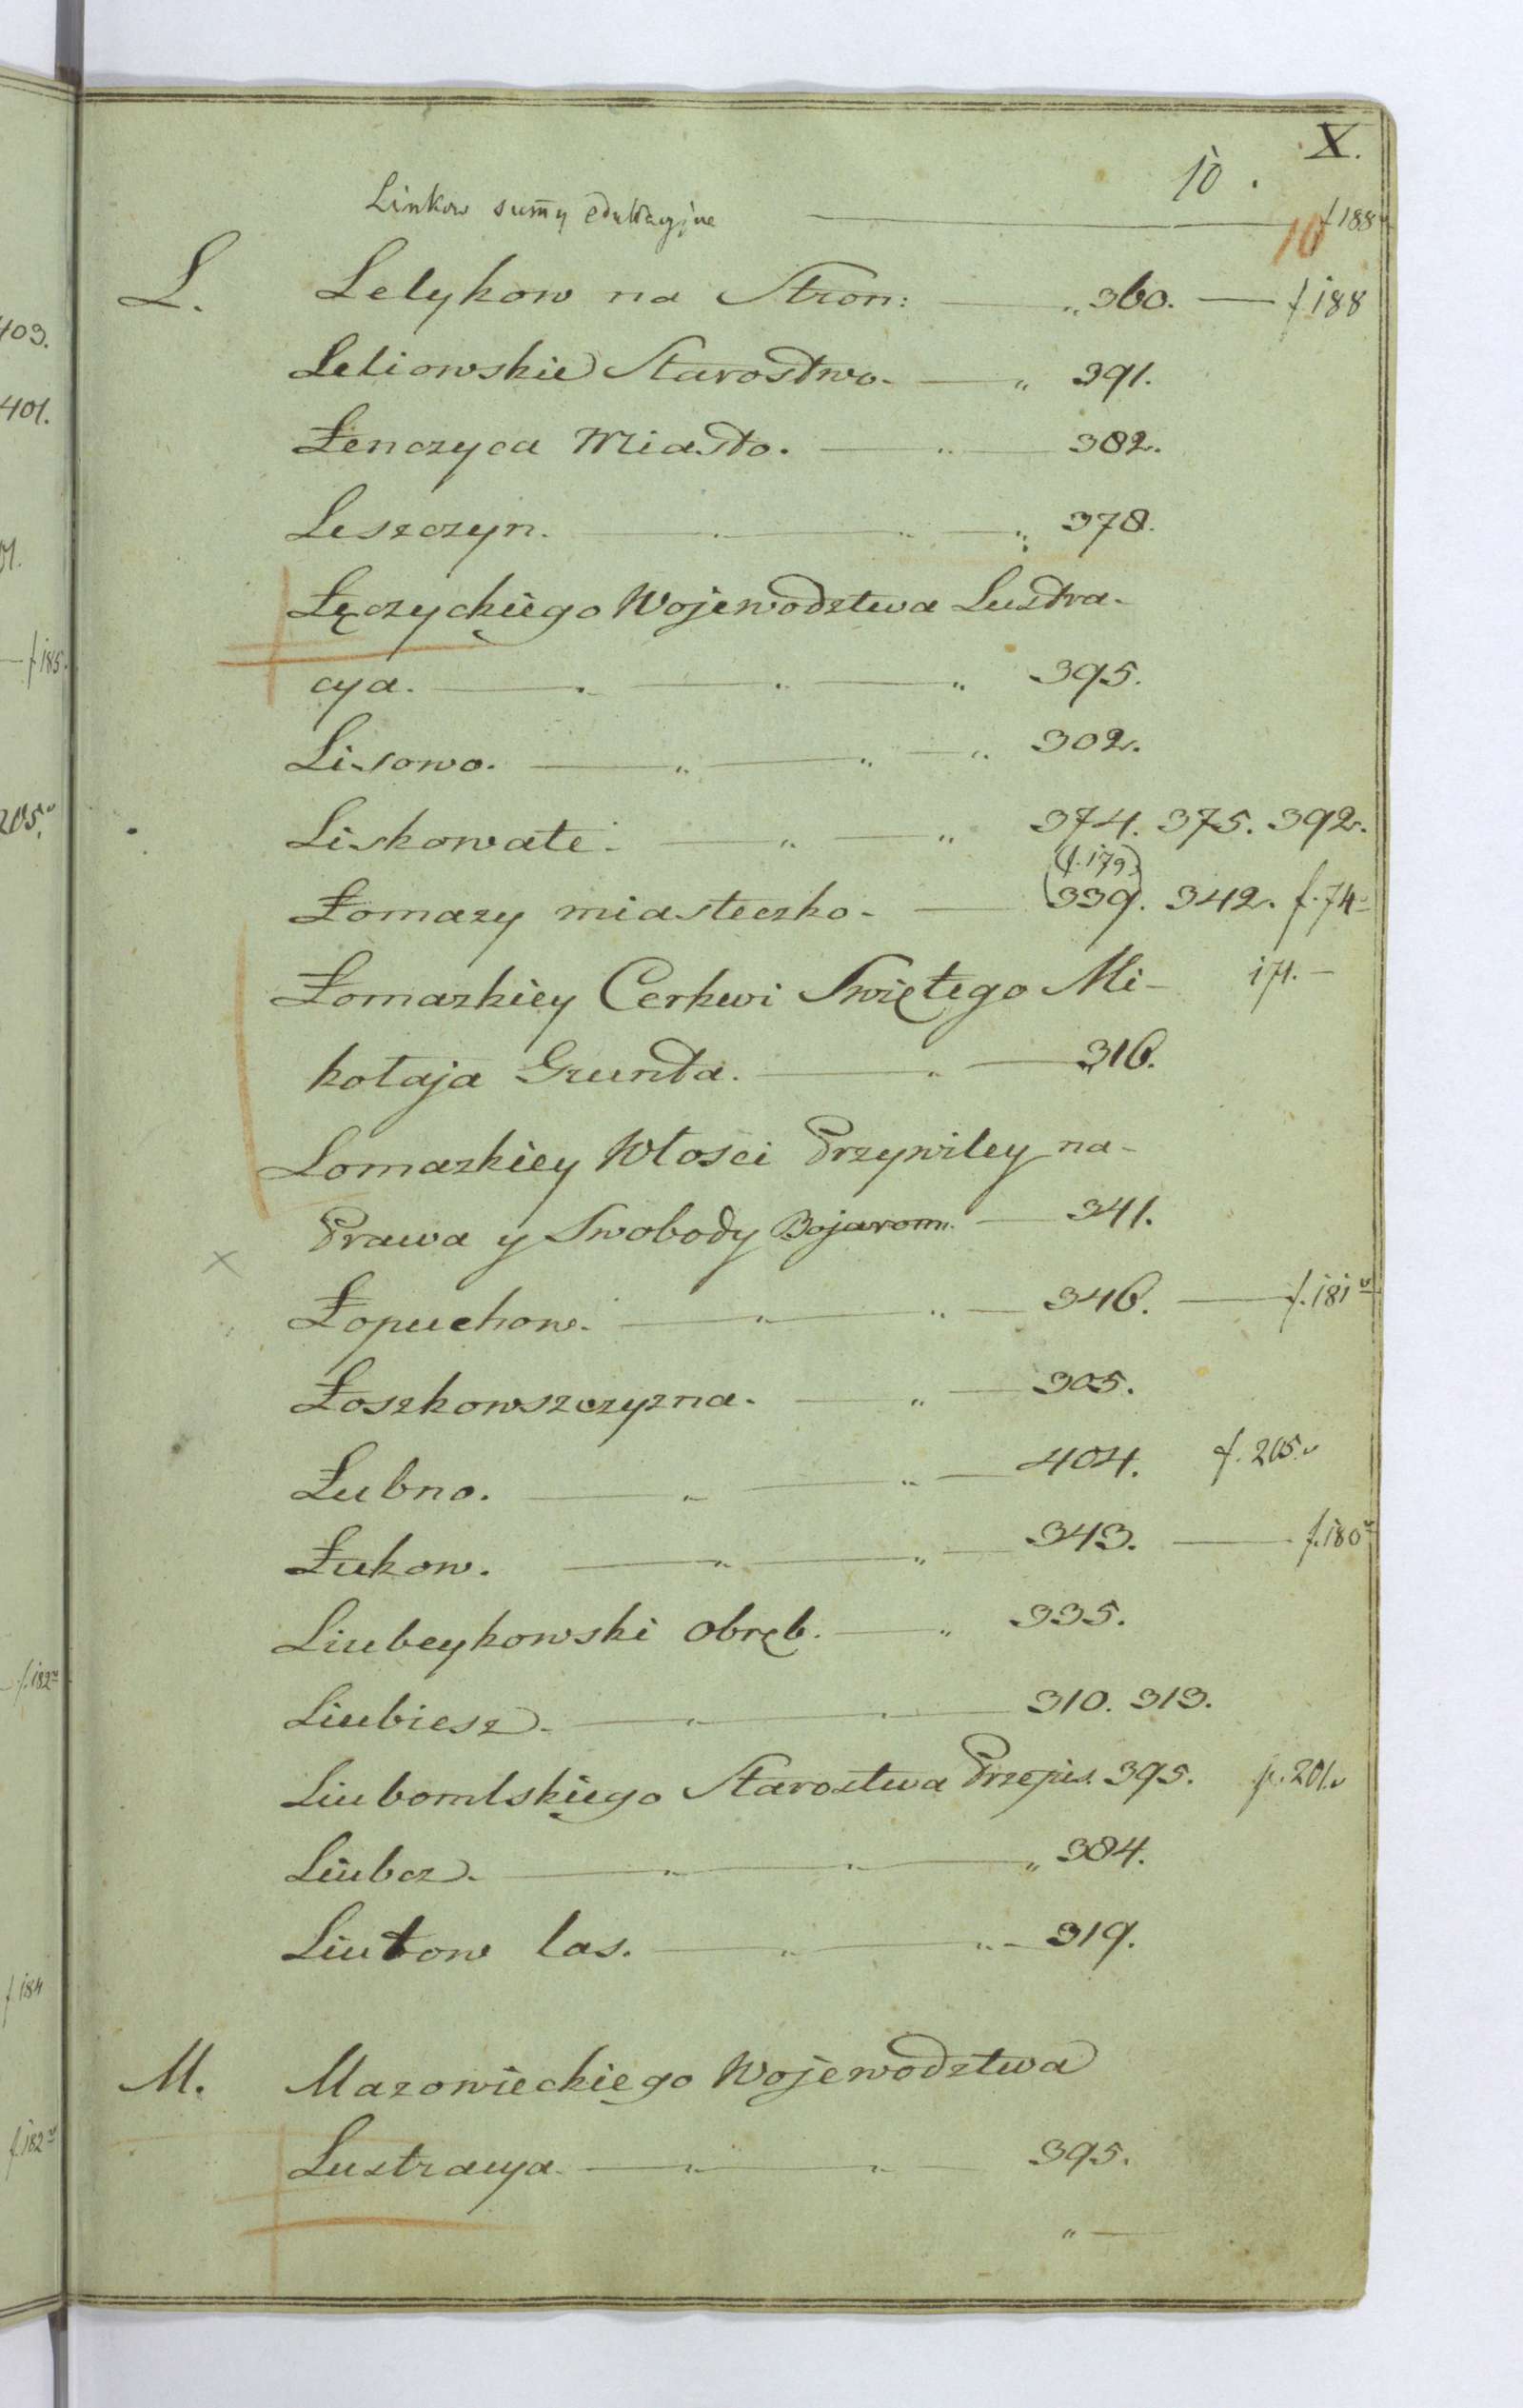 X.
10.
Linkow sum̄y edukacyjne — f 188v
10
L. Lelykow na Stron: — „ 360. — f 188
Leliowskie Starostwo. — „ 391.
Łenczyca Miasto. — „ — 382.
Leszczyn. — „ — „ 378.
Łęczyckiego Wojewodztwa Lustra-
cya. — „ — „ — „ 395.
Lisowo. — „ — „ — „ 302.
Liskowate. — „ — „ 374. 375. 392.
(f. 179)
Łomazy miasteczko. — 339. 342. f. 74v
Łomazkiey Cerkwi Swiętego Mi- 171. —
kołaja Grunta. — „ — 316.
Lomazkiey Włosci Przywiley na-
Prawa y Swobody Bojarom. — 341.
Łopuchow. — „ — „ — 346. — f. 181v
Łoszkowszczyzna. — „ — 305.
Łubno. — „ — „ — 404. f. 205.v
Łukow. — „ — „ — 343. — f. 180v
Liubeykowski obręb. — „ 335.
Liubiesz. — „ — „ — 310. 313.
Liubomlskiego Starostwa Przepis. 395. f. 201.v
Liubcz. — „ — „ — „ 384.
Liutow las. — „ — „ — 319.
M. Mazowieckiego Wojewodztwa
Lustracya. — „ — „ — 395.
„ —
403.
401.
f 185.
205.v
f. 182v
f 184
f. 182v